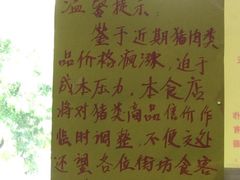 温馨提示:
鉴于近期猪肉类
品价格疯涨,迫于
成本压力,本食店
将对猪类商品售价作
临时调整,不便之处
还望各位街坊食客